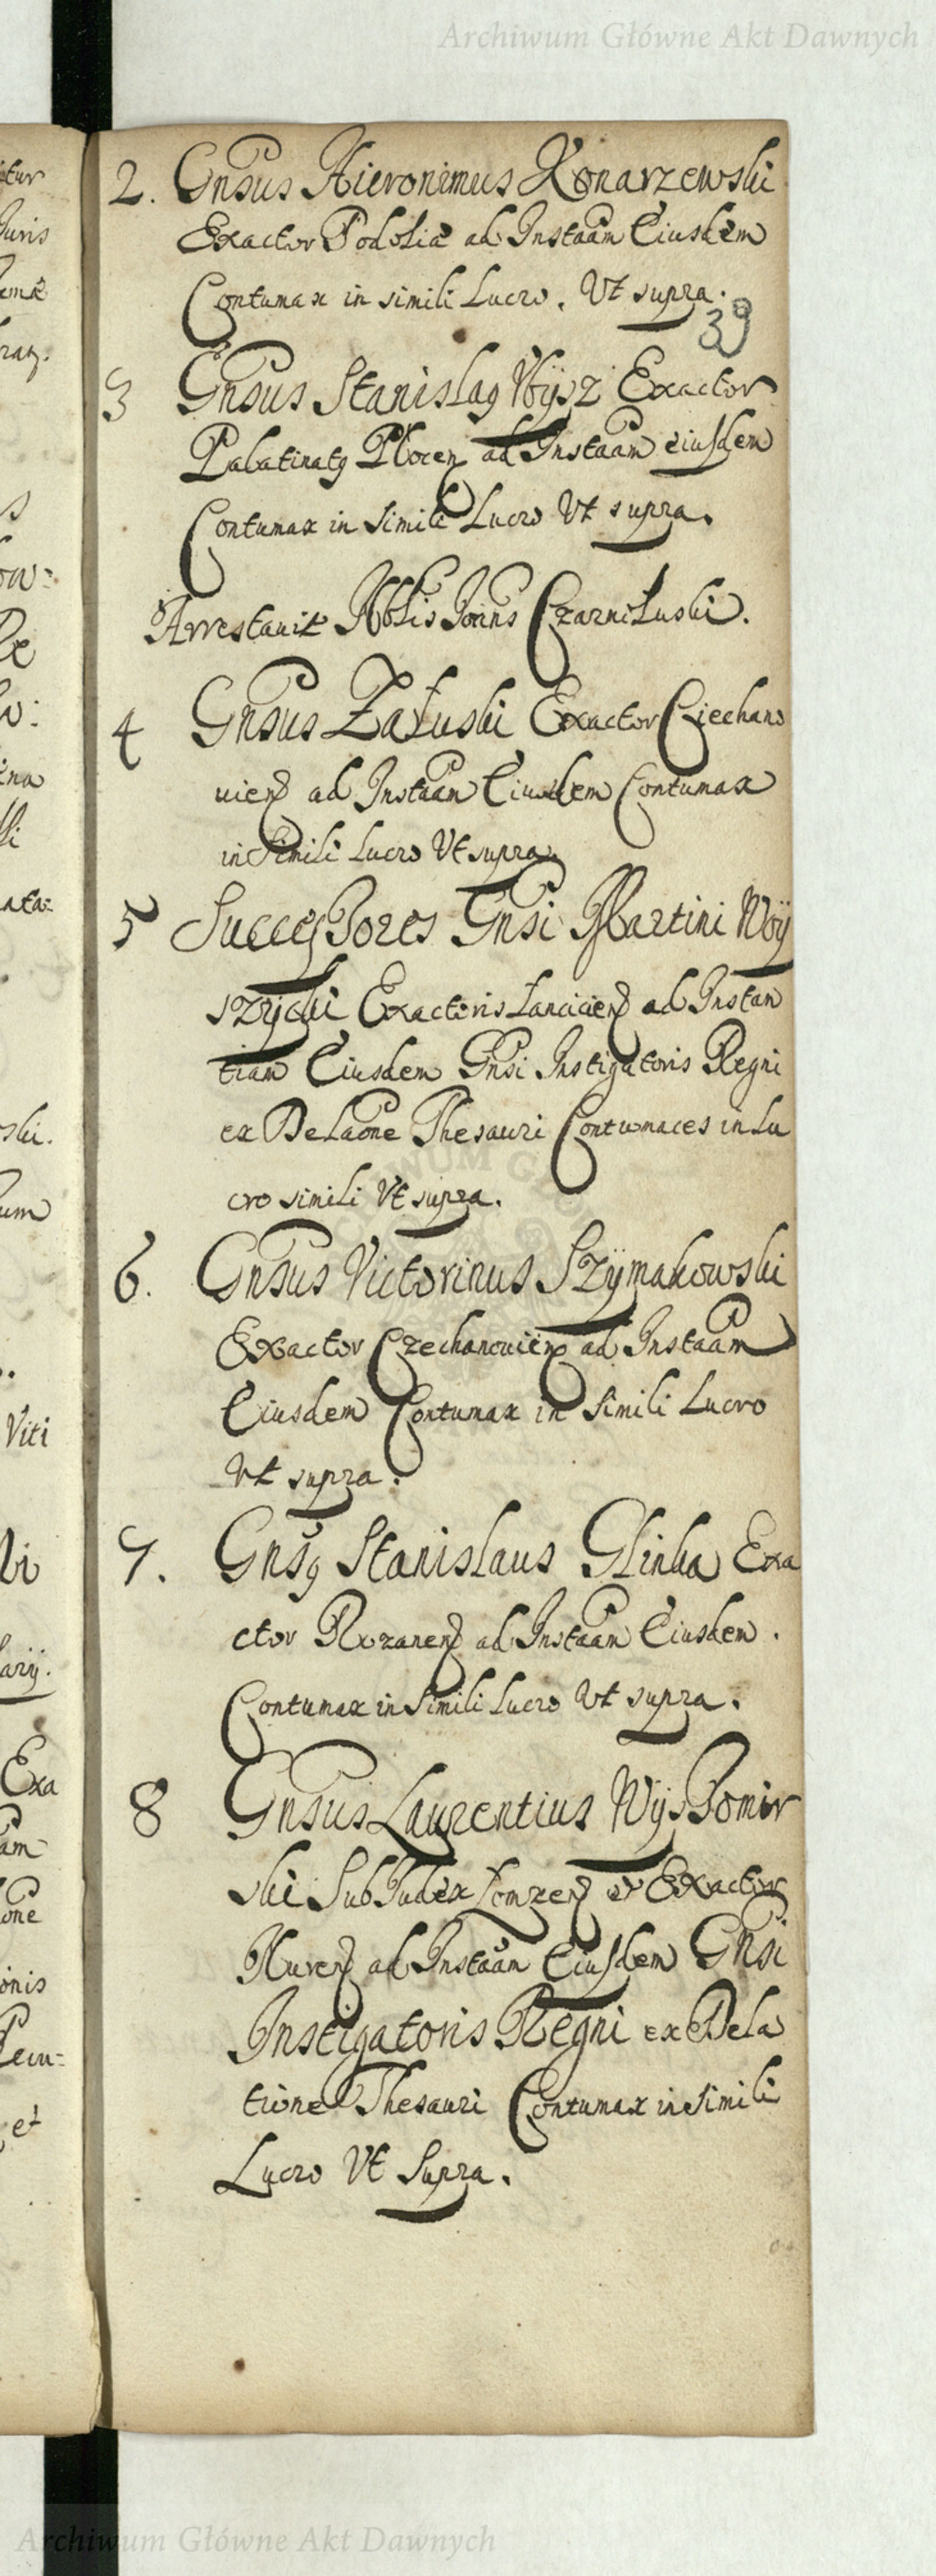 Archiwum Główne Akt Dawnych
2. Gnsus Hieronimus Konarzewski
Exactor Podoliæ ad Instaãm Eiusdem
Contumax in simili Lucro. Vt supra.
39
3 Gnsus Stanislaꝯ Wÿsz Exactor
Palatinatꝯ Plocen ad Instaãm eiusdem
Contumax in simili Lucro Vt supra.
Arrestauit Nblis Joãns Czarniluski.
4 Gnsus Załuski Exactor Ciechano
uien ad Instaãm Eiusdem Contumax
in Simili Lucro Vt supra.
5 Successores Gnsi Martini Woÿ
szycki Exactoris Lancicien ad Instan
tiam Eiusdem Gnsi Instigatoris Regni
ex Delaõne Thesauri Contumaces in Lu
cro simili Vt supra.
6. Gnsus Victorinus Szÿmakowski
Exactor Czechanouien ad Instaãm
Eiusdem Contumax in Simili Lucro
Vt supra.
7. Gnsꝯ Stanislaus Glinka Exa
ctor Rozanen ad Instaãm Eiusdem.
Contumax in Simili Lucro Vt supra.
8 Gnsus Laurentius Wÿssomir
ski SubJudex Lomzen et Exactor
Nuren ad Instaãm Eiusdem Gnsi
Instigatoris Regni ex Dela
tione Thesauri Contumax in Simili
Lucro Vt Supra.
Archiwum Główne Akt Dawnych